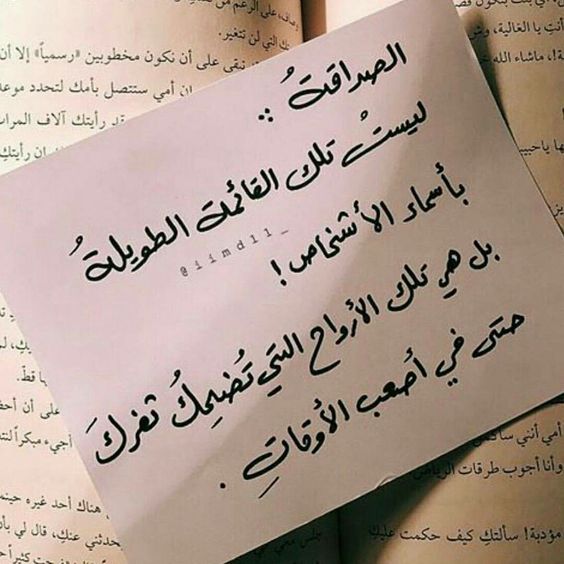 الصداقةُ :
ليستُ تلك القائمة الطويلةُ
بأسماء الأشخاص !
@iimd11_
بل هي تلك الأرواح التي تُضحِكُ ثغركَ
حتى في أصعب الأوقاتِ .
على الرغم من
التي لن تتغير.
نبقى على أن نكون مخطوبين «رسمياً» إلا أن
ان أمي ستتصل بأمك لتحدد موعد
رأيتك آلاف المرات
أنتِ يا الغالية،
ماشاء الله
أمي أنني
وأنا أجوب طرقات الرياض
مؤدبة! سألتكِ كيف حكمت عليكِ
هناك أحد غيره
حدثني عنكِ، قال لي